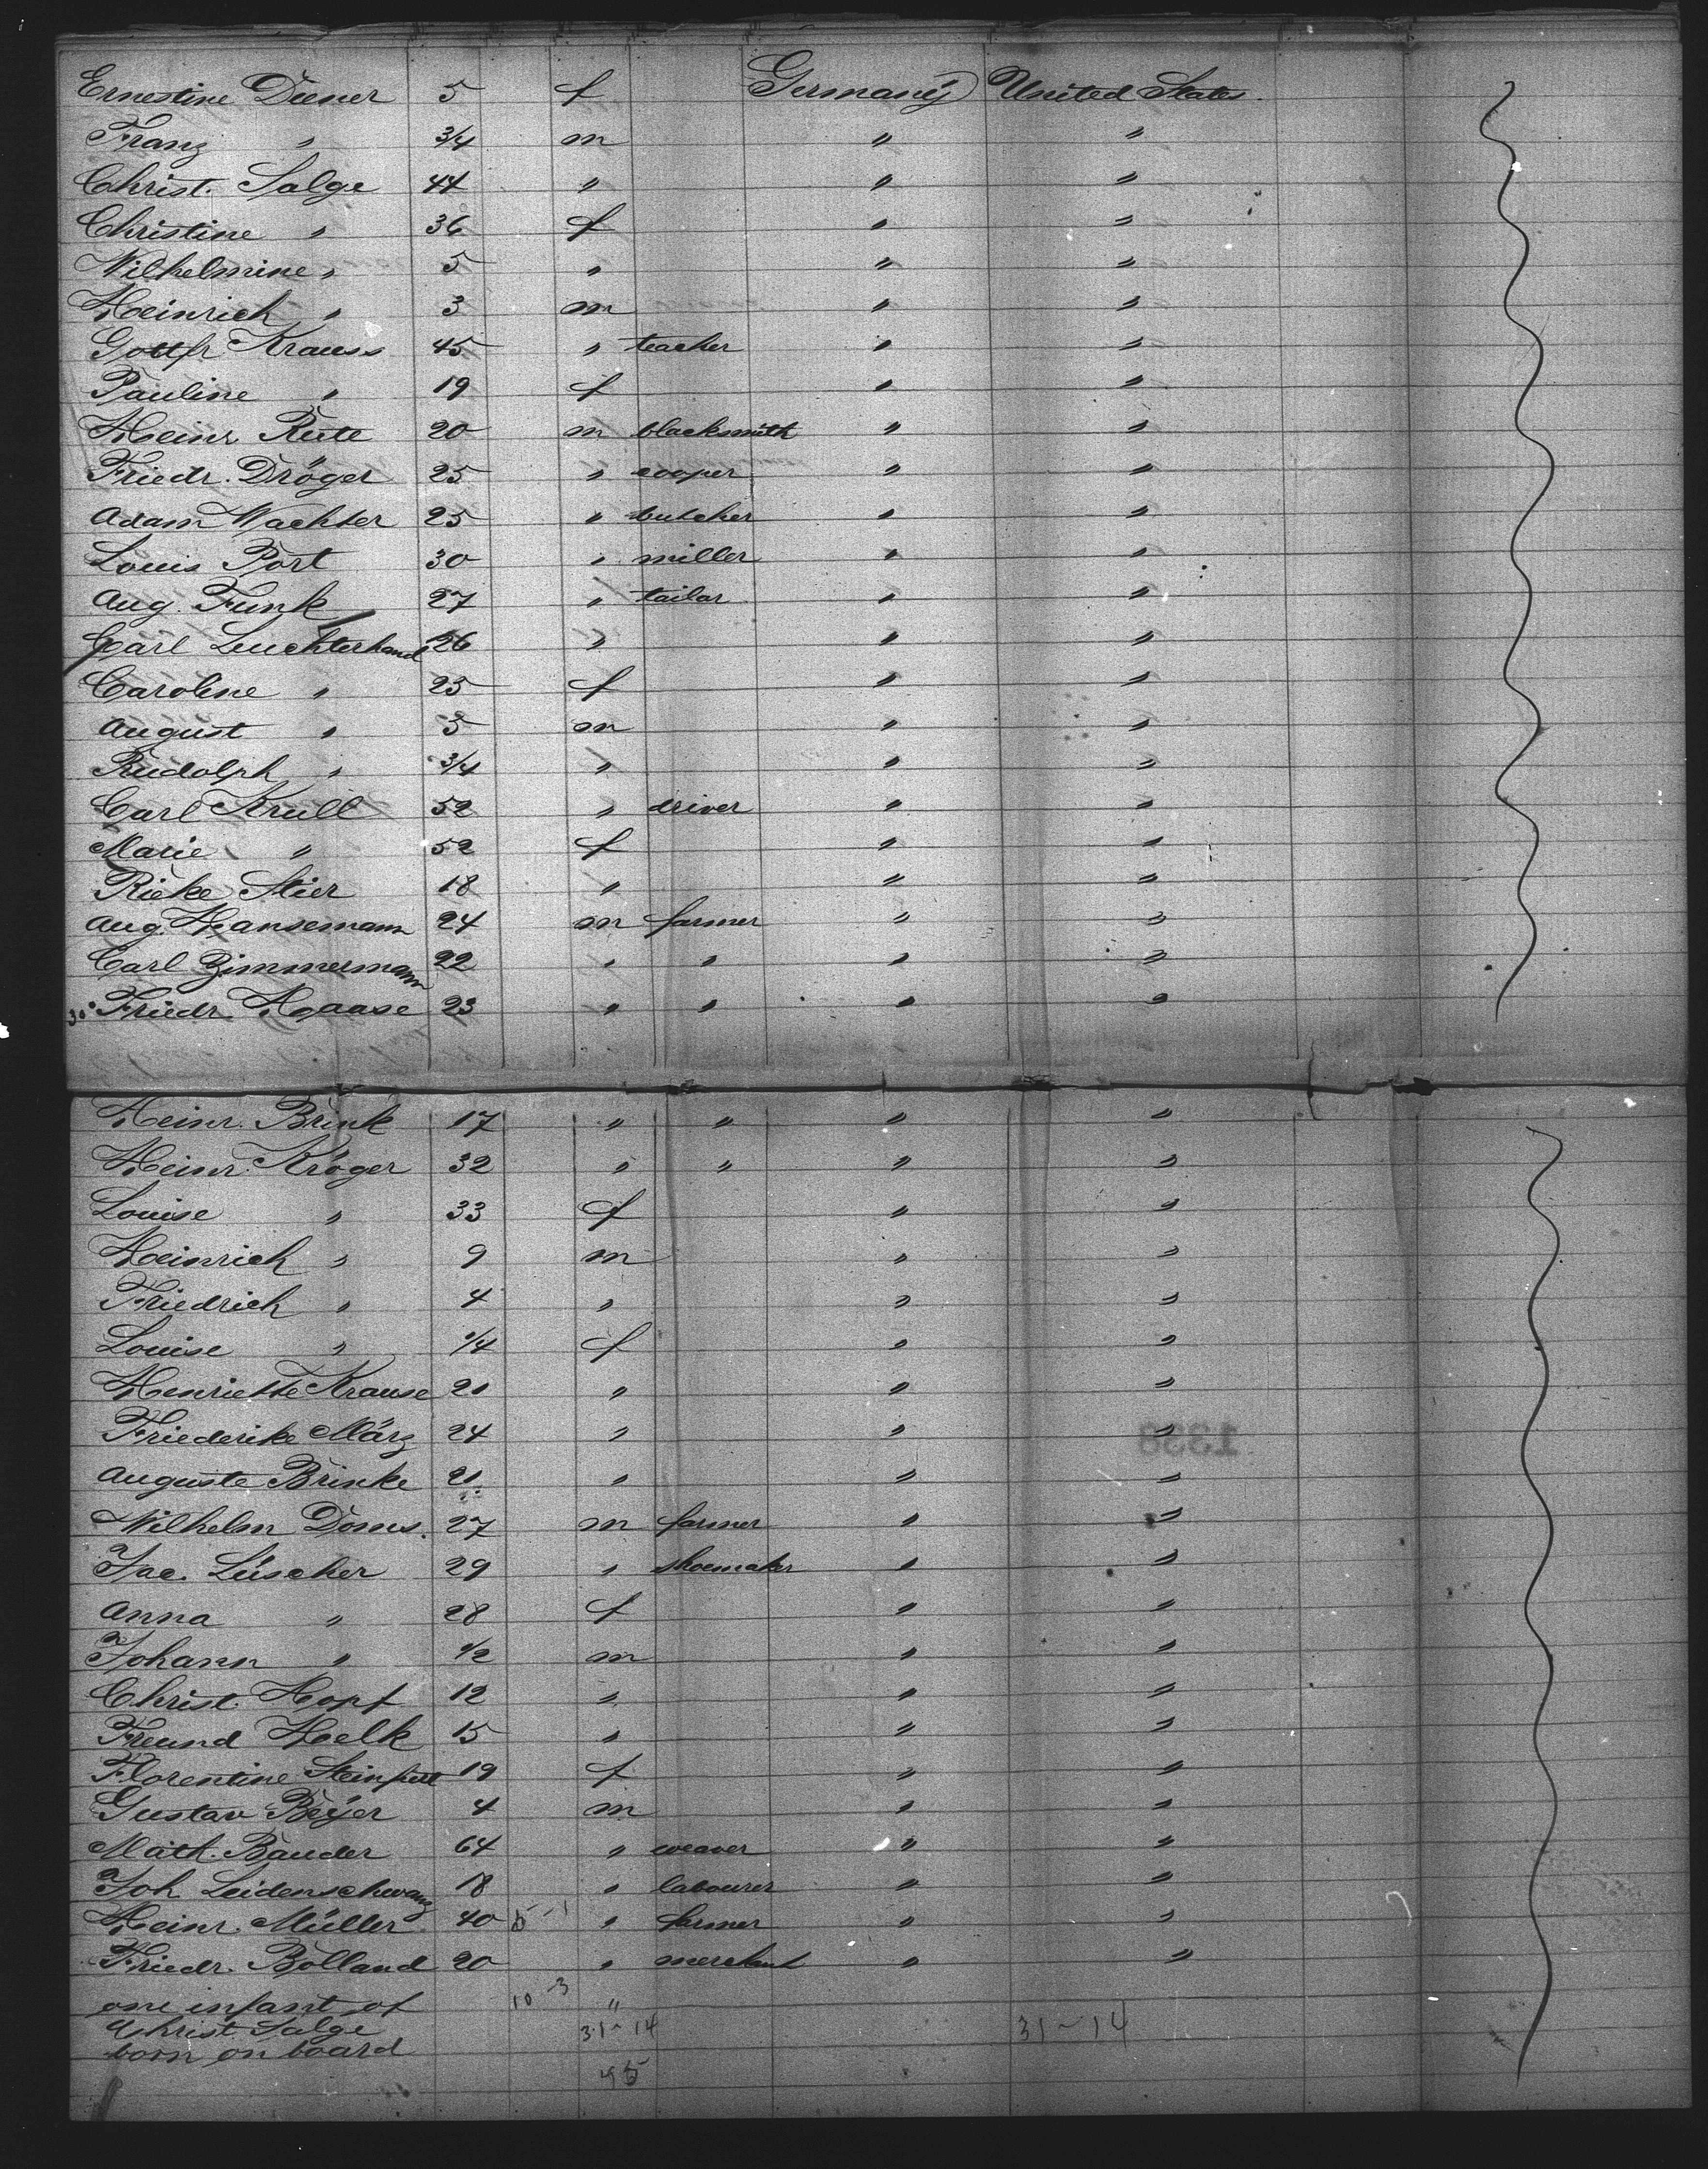 Ernestine Diener 5 f Germany United States.
Franz " 3/4 m " "
Christ. Salge 44 " " "
Christine " 36 f " "
Wilhelmine " 5 " " "
Heinrich " 3 m " "
Gottfr Krauss 45 " teacher " "
Pauline " 19 f " "
Heinr. Rute 20 m blacksmith " "
Friedr. Dröger 25 " cooper " "
Adam Wachter 25 " butcher " "
Louis Port 30 " miller " "
Aug. Funk 27 " tailor " "
Carl Leuchterhand 26 " " "
Caroline " 25 f " "
August " 3 m " "
Rudolph " 3/4 " " "
Carl Krull 52 " driver " "
Marie " 52 f " "
Rieke Stier 18 " " "
Aug. Hansemann 24 m farmer " "
Carl Zimmermann 22 " " " "
Friedr. Haase 23 " " " "
Heinr. Brink 17 " " " "
Heinr. Kröger 32 " " " "
Louise " 33 f " "
Heinrich " 9 m " "
Friedrich " 4 " " "
Louise " 1/4 f " "
Henriette Krause 20 " " "
Friederike März 24 " " "
Auguste Brinke 20 " " "
Wilhelm Doms. 27 m farmer " "
Jac. Lüscher 29 " shoemaker " "
Anna " 28 f " "
Johann " 1/2 m " "
Christ. Hopf 12 " " "
Freund Helk 15 " " "
Florentine 19 f " "
Gustav Beyer 4 m " "
Math. Bauder 64 " weaver " "
Joh Leidenschwanz 18 " labourer " "
Heinr. Müller 40 " farmer " "
Friedr. Bolland 20 " merchant " "
one infant of 10 3 "
Christ Salge 31-14 31-14
born on board
45